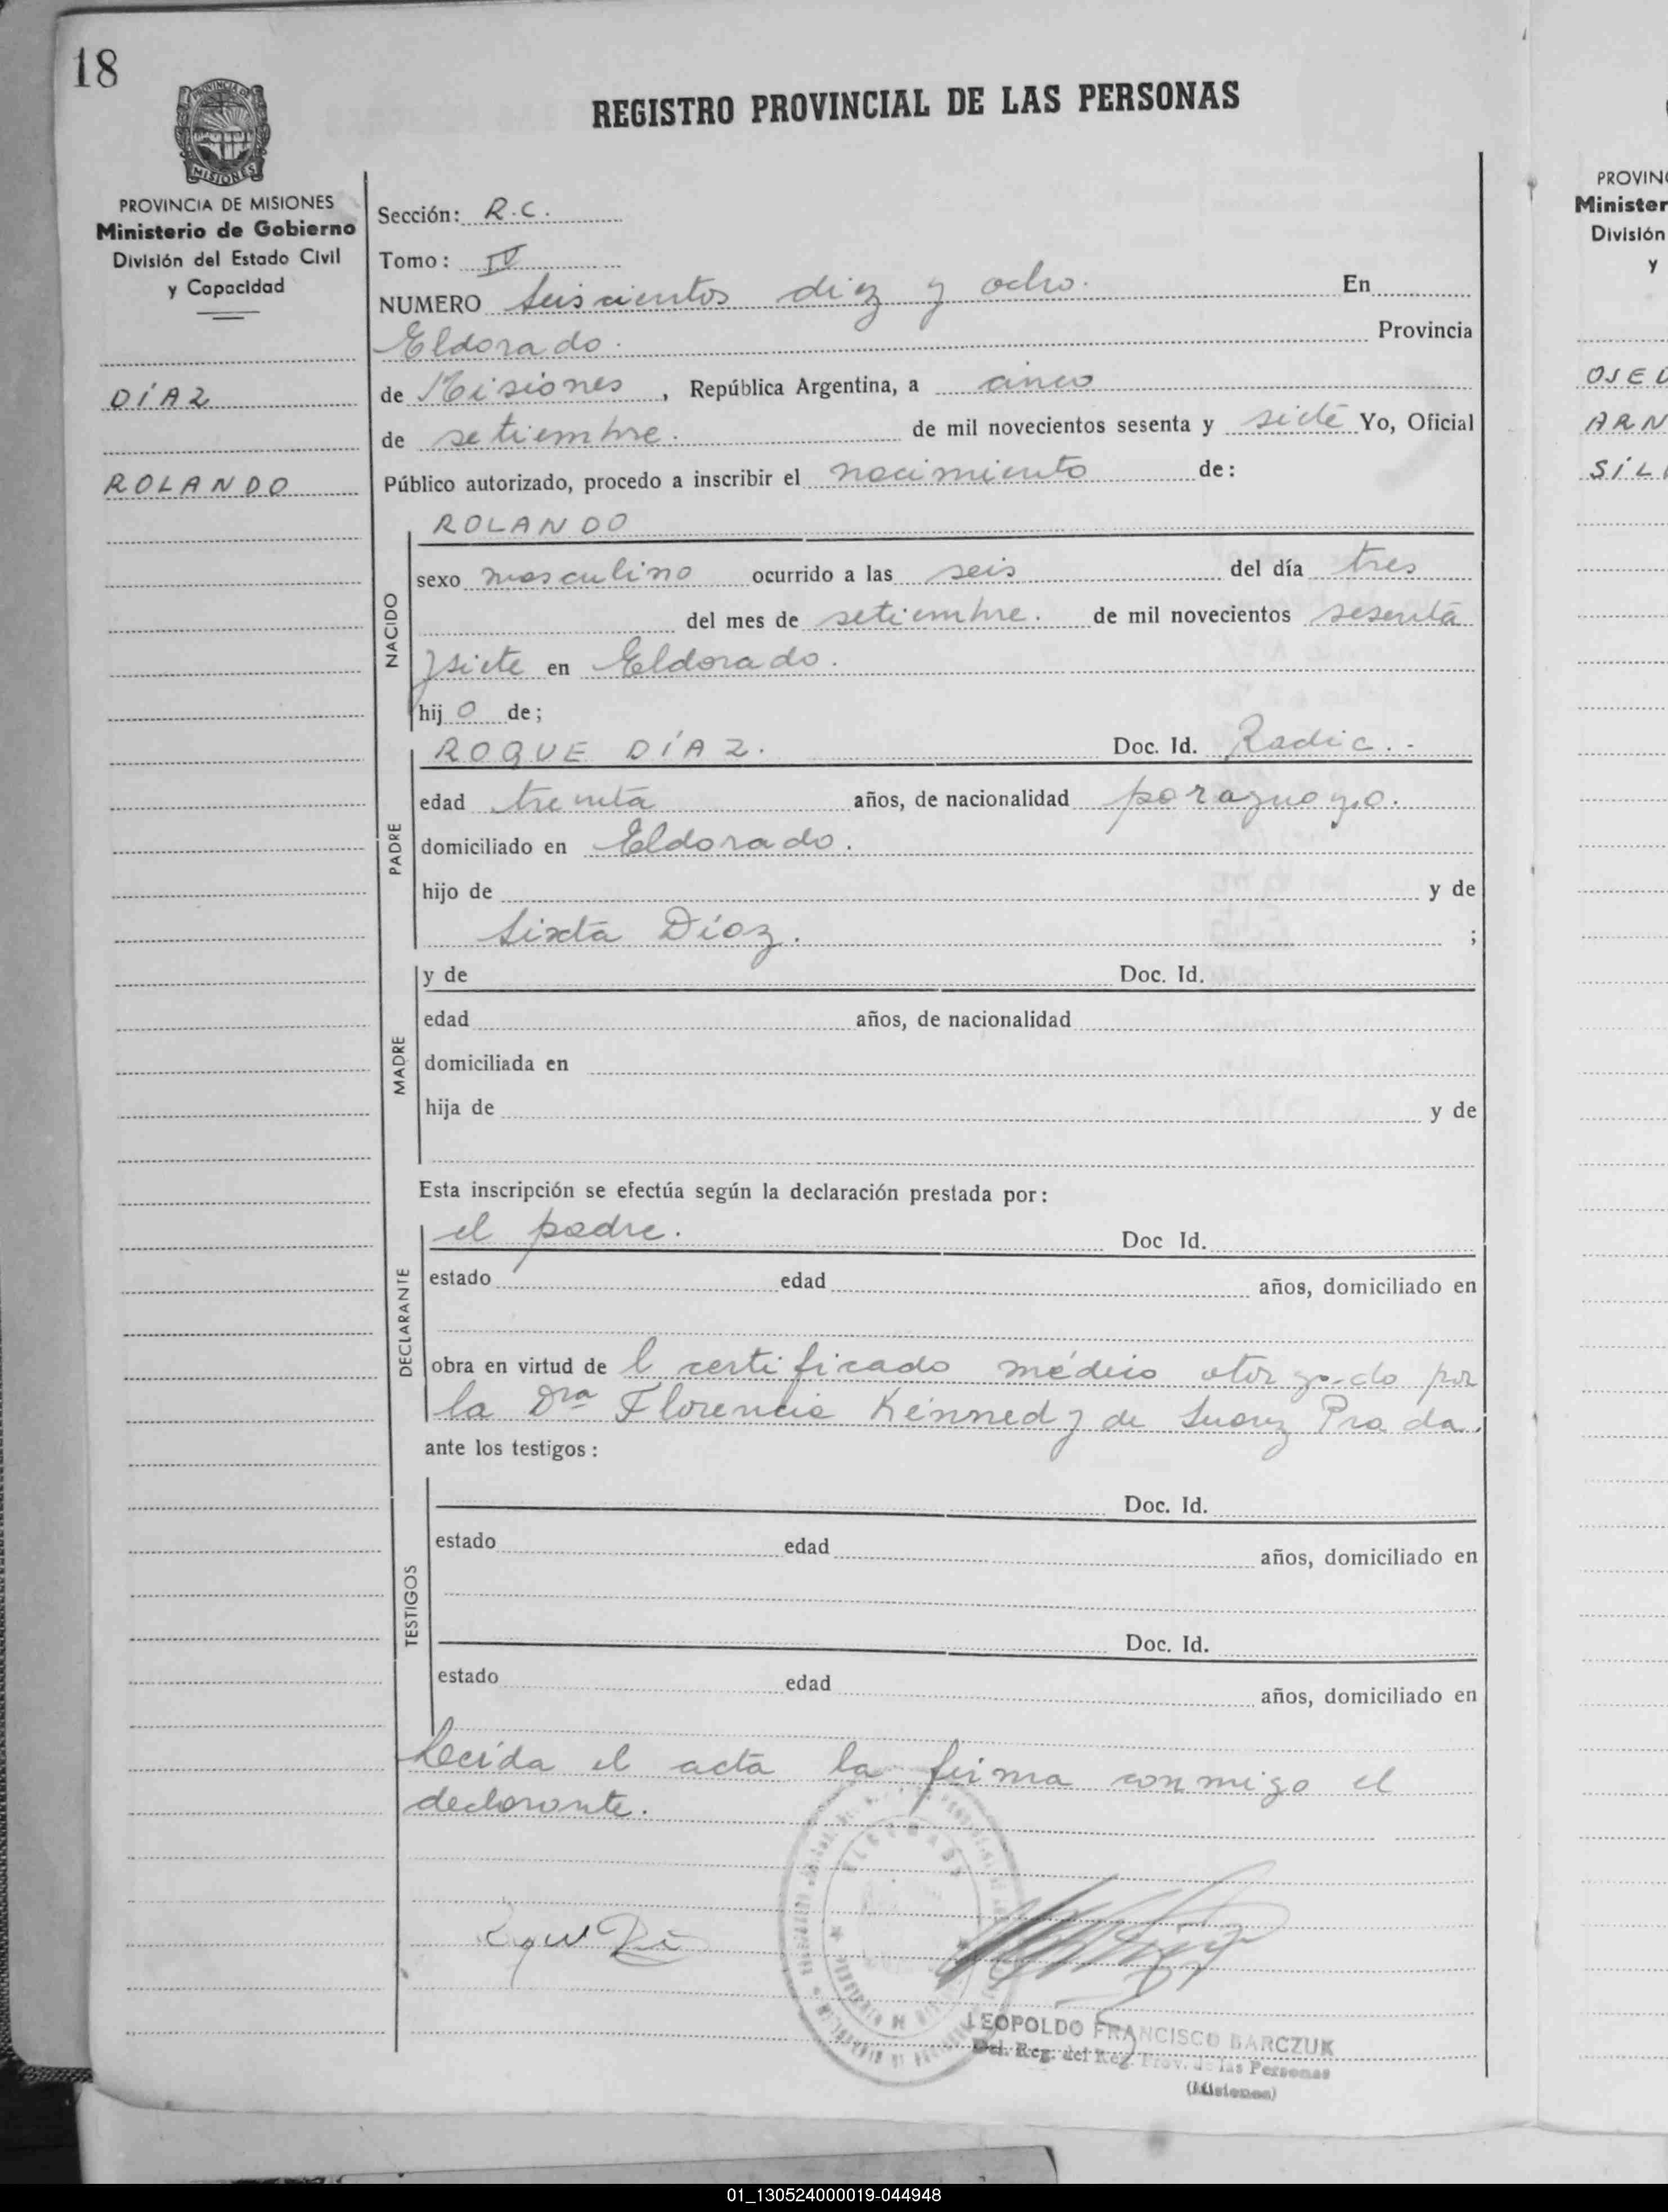 18
REGISTRO PROVINCIAL DE LAS PERSONAS
PROVINCIA DE
MISIONES
PROVINCIA DE MISIONES
Ministerio de Gobierno
División del Estado Civil
y Capacidad
DÍAZ
ROLANDO
Sección: R.C.
Tomo: IV
NUMERO Seiscientos diez y ocho. En
Eldorado. Provincia
de Misiones, República Argentina, a cinco
de setiembre. de mil novecientos sesenta y siete Yo, Oficial
Público autorizado, procedo a inscribir el nacimiento de:
NACIDO
ROLANDO
sexo masculino ocurrido a las seis del día tres
del mes de setiembre. de mil novecientos sesenta
y siete en Eldorado.
hij o de;
PADRE
ROQUE DÍAZ. Doc. Id. Radic.-
edad treinta años, de nacionalidad paraguayo.
domiciliado en Eldorado.
hijo de y de
Sixta Díaz. ;
MADRE
y de Doc. Id.
edad años, de nacionalidad
domiciliada en
hija de y de
Esta inscripción se efectúa según la declaración prestada por:
DECLARANTE
el padre. Doc Id.
estado edad años, domiciliado en
obra en virtud de l certificado médico otorgado por
la Dra Florencia Kennedy de Suarez Prada.
ante los testigos:
TESTIGOS
Doc. Id.
estado edad años, domiciliado en
Doc. Id.
estado edad años, domiciliado en
Leída el acta la firma conmigo el
declarante.
LEOPOLDO FRANCISCO BARCZUK
Del. Reg. del Reg. Prov. de las Personas
(Misiones)
PROVIN
Minister
División
y
OSEU
ARN
SÍL
01_130524000019-044948